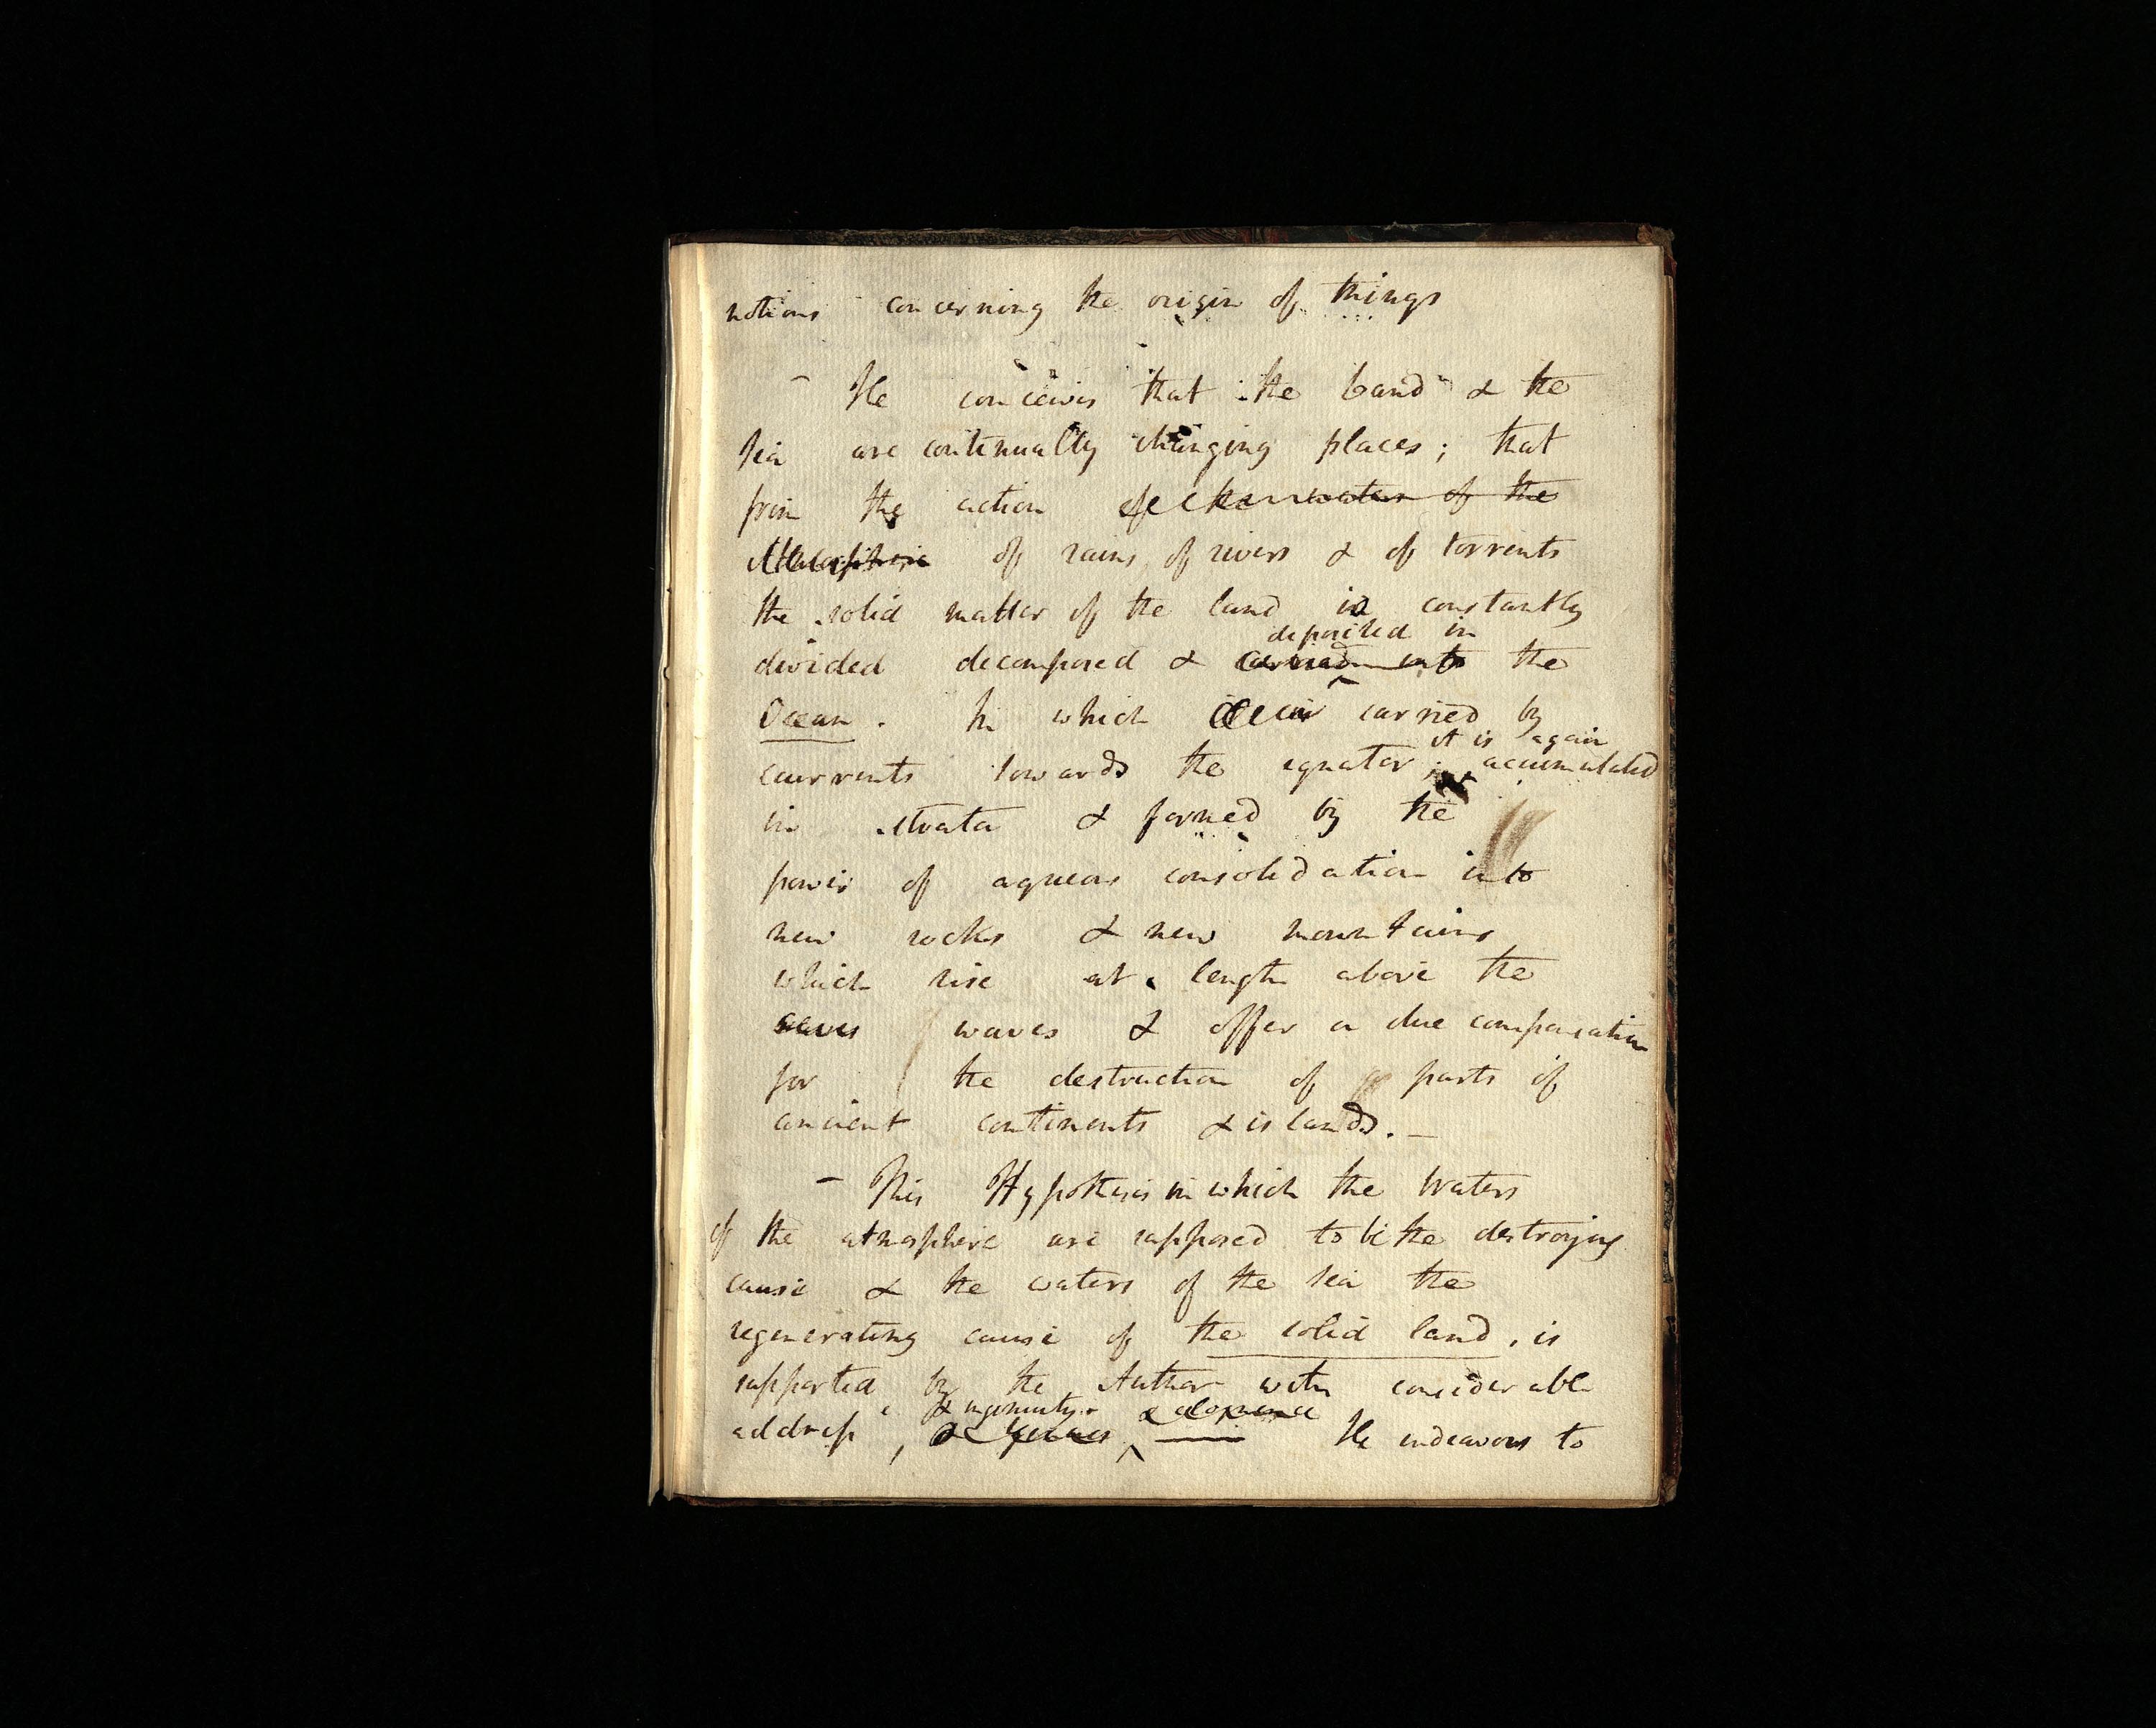 notions concerning the origin of things
- He conceives that the Land & the
sea are continually changing places; that
from the action of the waters of the
Atmosphere of rains, of rivers & of torrents
the solid matter of the land is constantly
deposited in
divided decomposed & carried into the
Ocean. In which carried by
it is again
currents towards the equator; accumulated
in strata & formed by the
power of aqueous consolidation into
new rocks & new mountains
which rise at length above the
waves & offer a due compensation
for the destruction of parts of
ancient continents & islands. -
- This Hypothesis in which the Waters
of the atmosphere are supposed to be the destroying
cause & the waters of the sea the
regenerating cause of the solid land, is
supported by the Author with considerable
& ingenuity.
address, He endeavors to